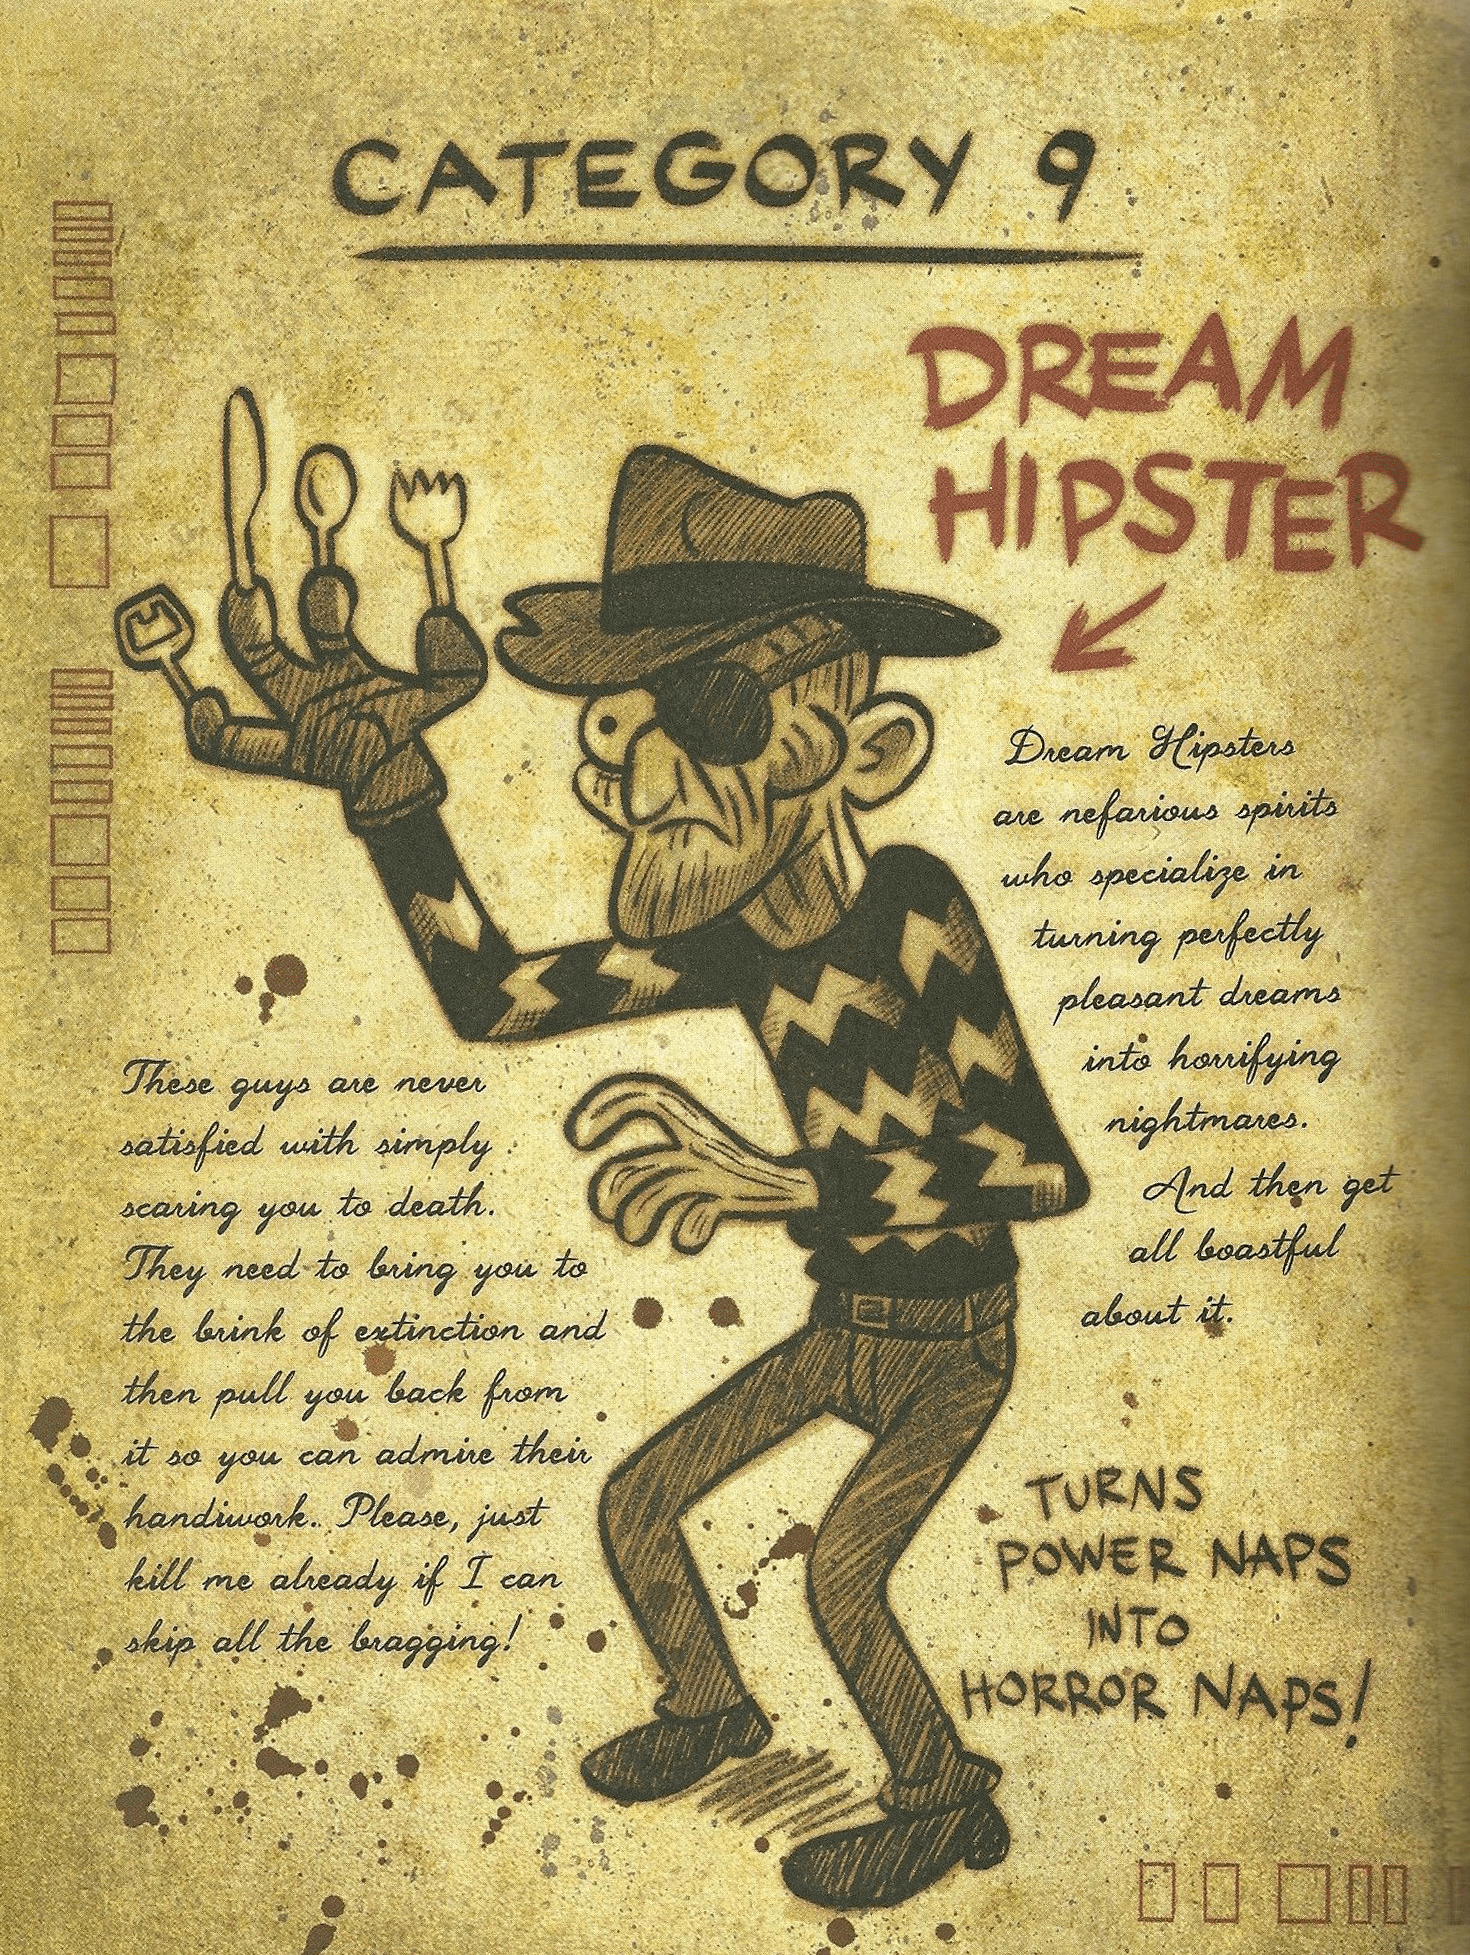 CATEGORY 9
DREAM
HIPSTER
Dream Hipsters
are nefarious spirits
who specialize in
turning perfectly
pleasant dreams
into horrifying
nightmares.
And then get
all boastful
about it.
These guys are never
satisfied with simply
scaring you to death.
They need to bring you to
the brink of extinction and
then pull you back from
it so you can admire their
handiwork. Please, just
kill me already if I can
skip all the bragging!
TURNS
POWER NAPS
INTO
HORROR NAPS!